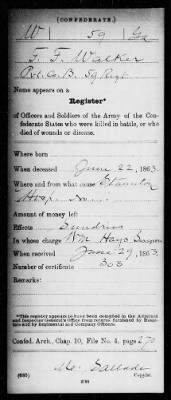 (CONFEDERATE.)
W 59 Ga
F. F. Walker
Pvt. Co. B. 59 Regt.
Name appears on a
Register*
of Officers and Soldiers of the Army of the Confederate States who were killed in battle, or who
died of wounds or disease.
Where born
When deceased June 22, 1863.
Where and from what cause Staunton
Hosp.
Amount of money left
Effects Sundries
In whose charge Wm Hays Surgeon
When received June 29, 1863.
Number of certificate 303
Remarks:
*This register appears to have been compiled in the Adjutant
and Inspector General's Office from returns furnished by Hospitals
and by Regimental and Company Officers.
Confed. Arch., Chap. 10, File No. 4, page 270
(635)
Copyist.